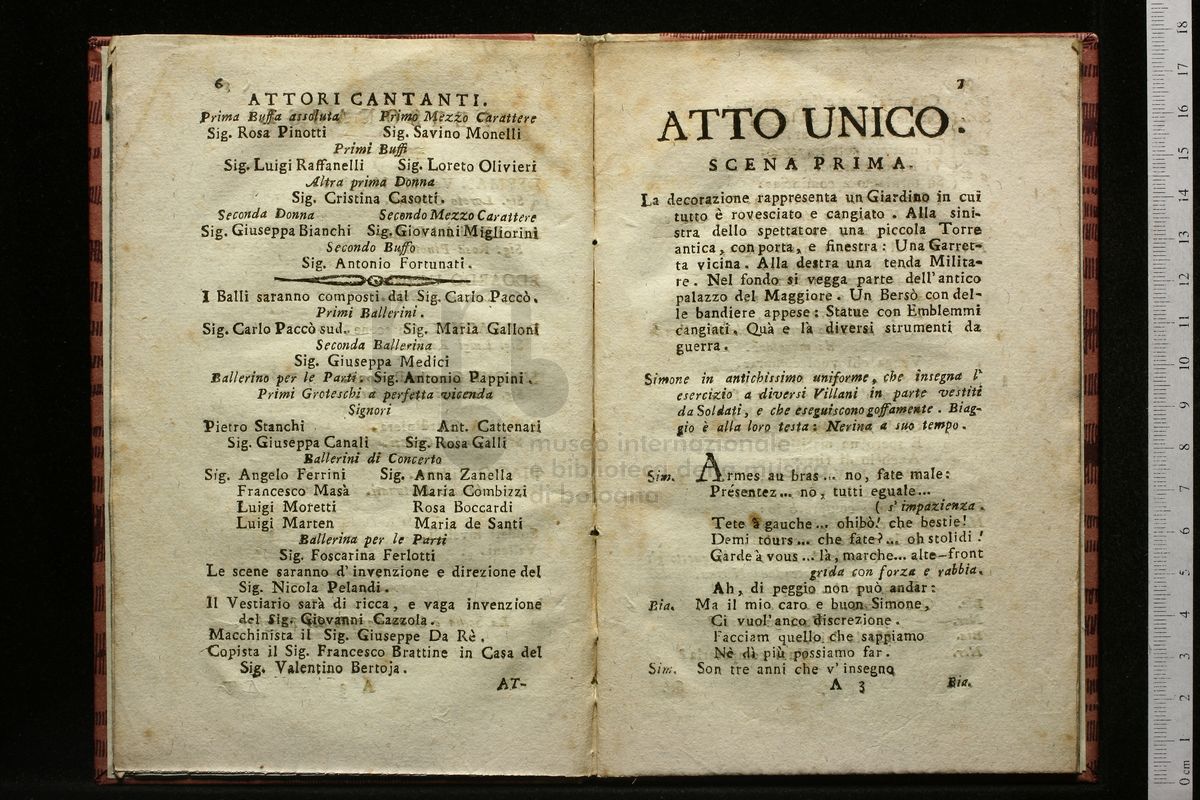 6
ATTORI CANTANTI.
Prima Buffa assoluta Primo Mezzo Carattere
Sig. Rosa Pinotti Sig. Savino Monelli
Primi Buffi
Sig. Luigi Raffanelli Sig. Loreto Olivieri
Altra prima Donna
Sig. Cristina Casotti.
Seconda Donna Secondo Mezzo Carattere
Sig. Giuseppa Bianchi Sig. Giovanni Migliorini
Secondo Buffo
Sig. Antonio Fortunati.
I Balli saranno composti dal Sig. Carlo Paccò.
Primi Ballerini.
Sig. Carlo Paccò sud. Sig. Maria Galloni
Seconda Ballerina
Sig. Giuseppa Medici
Ballerino per le Parti. Sig. Antonio Pappini.
Primi Groteschi a perfetta vicenda
Signori
Pietro Stanchi Ant. Cattenari
Sig. Giuseppa Canali Sig. Rosa Galli
Ballerini di Concerto
Sig. Angelo Ferrini Sig. Anna Zanella
Francesco Masà Maria Combizzi
Luigi Moretti Rosa Boccardi
Luigi Marten Maria de Santi
Ballerina per le Parti
Sig. Foscarina Ferlotti
Le scene saranno d'invenzione e direzione del
Sig. Nicola Pelandi.
Il Vestiario sarà di ricca, e vaga invenzione
del Sig. Giovanni Cazzola.
Macchinista il Sig. Giuseppe Da Rè.
Copista il Sig. Francesco Brattine in Casa del
Sig. Valentino Bertoja.
AT-
7
ATTO UNICO.
SCENA PRIMA.
La decorazione rappresenta un Giardino in cui
tutto è rovesciato e cangiato. Alla sini-
stra dello spettatore una piccola Torre
antica, con porta, e finestra: Una Garret-
ta vicina. Alla destra una tenda Milita-
re. Nel fondo si vegga parte dell'antico
palazzo del Maggiore. Un Bersò con del-
le bandiere appese: Statue con Emblemmi
cangiati. Quà e là diversi strumenti da
guerra.
Simone in antichissimo uniforme, che insegna l'
esercizio a diversi Villani in parte vestiti
da Soldati, e che eseguiscono goffamente. Biag-
gio è alla loro testa: Nerina a suo tempo.
Sim. Armes au bras ... no, fate male:
Présentez... no, tutti eguale...
( s'impazienza.
Tete à gauche... ohibò! che bestie!
Demi tours... che fate?... oh stolidi!
Garde à vous ... là, marche... alte-front
grida con forza e rabbia.
Ah, di peggio non può andar:
Bia. Ma il mio caro e buon Simone,
Ci vuol'anco discrezione.
Facciam quello che sappiamo
Nè di più possiamo far.
Sim. Son tre anni che v'insegno
A 3 Bia.
museo internazionale
e biblioteca della musica
di bologna
0 cm 1 2 3 4 5 6 7 8 9 10 11 12 13 14 15 16 17 18